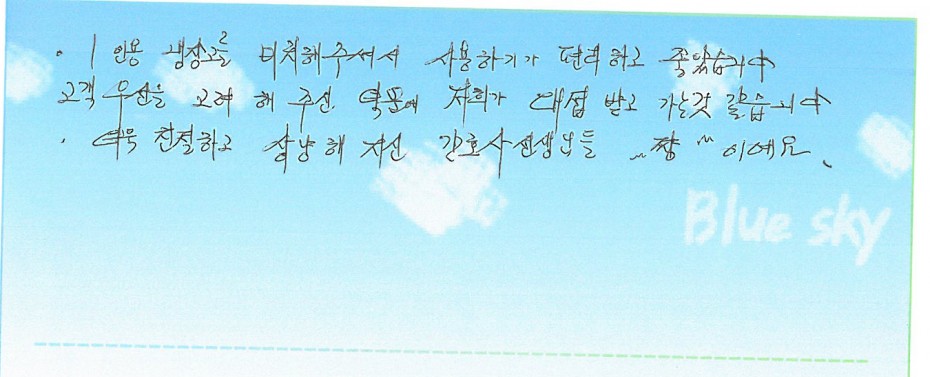 · 1인용 냉장고를 비치해주셔서 사용하기가 편리하고 좋았습니다
고객 우선을 고려 해 주신. 덕분에 저희가 대접 받고 가는것 같습니다
· 너무 친절하고 상냥해 지신 간호사선생님들 "짱" 이예요.
Blue sky